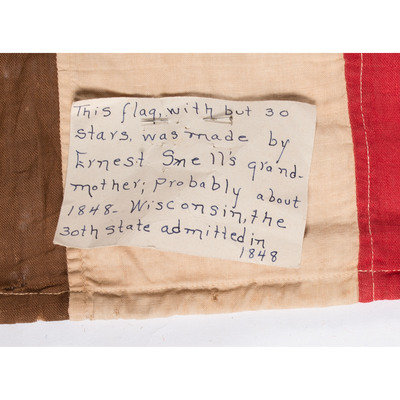 This flag, with but 30
stars, was made by
Ernest Snell's grand-
mother; Probably about
1848- Wisconsin, the
30th state admitted in
1848